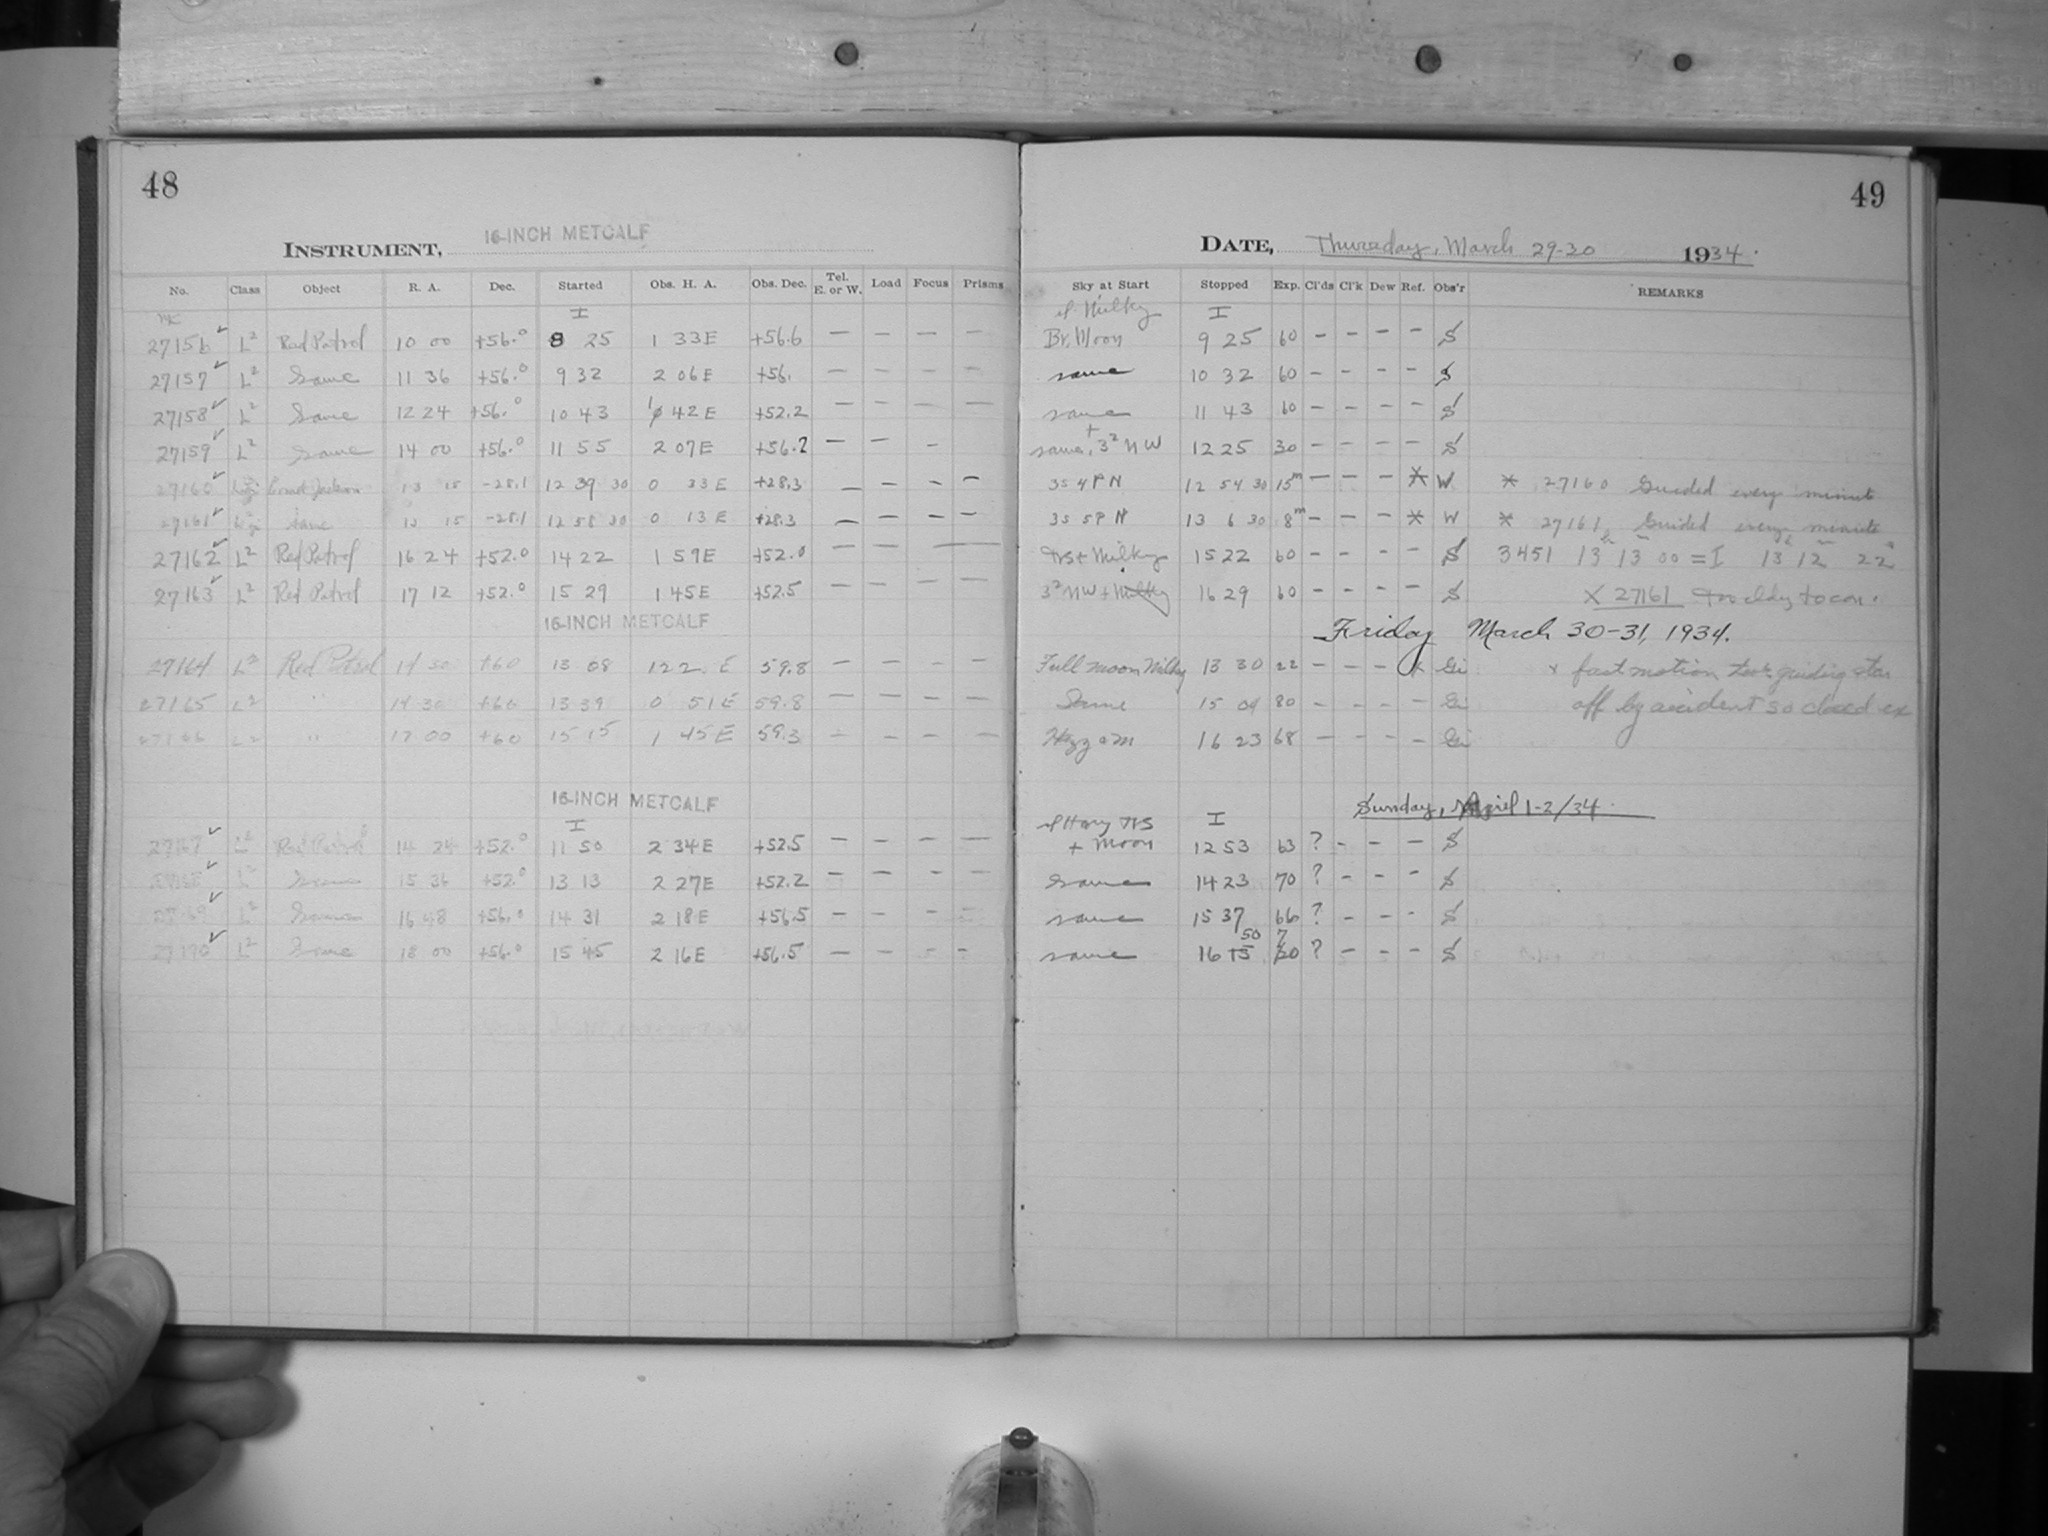 48
49
INSTRUMENT, 16-INCH METCALF
DATE, Thursday, March 29-30 1934.
No. Class Object R. A. Dec. Started Obs. H. A. Obs. Dec. Tel. E. or W. Load Focus Prisms Sky at Start Stopped Exp. Cl'ds Cl'k Dew Ref. Obs'r REMARKS
I Milky I
27156 L2 Red Patrol 10 00 +56.0 8 25 1 33E +56.6 — — — — Br. Moon 9 25 60 — — — — S
27157 L2 Same 11 36 +56.0 9 32 2 06E +56. — — — — same 10 32 60 — — — — S
27158 L2 Same 12 24 +56.0 10 43 1 42E +52.2 — — — — same 11 43 60 — — — — S
27159 L2 Same 14 00 +56.0 11 55 2 07E +56.2 — — — same, 32 NW 12 25 30 — — — — S
27160 Comet Jackson 13 15 -28.1 12 39 30 0 33E +28.3 — — — — 3s 4P N 12 54 30 15m — — — * W * 27160 Guided every minute
27161 Same 13 15 -28.1 12 58 30 0 13E +28.3 — — — — 3s 5P N 13 6 30 8m — — — * W * 27161 Guided every minute
27162 L2 Red Patrol 16 24 +52.0 14 22 1 59E +52.0 — — — + Milky 15 22 60 — — — — S 3451 13h 13m 00 = I 13h 12m 22s
27163 L2 Red Patrol 17 12 +52.0 15 29 1 45E +52.5 — — — — 32 NW + Milky 16 29 60 — — — — S X 27161
16-INCH METCALF Friday March 30-31, 1934.
27164 L2 Red Patrol 14 30 +60 13 08 1 22 E 59.8 — — — — Full moon Milky 13 30 22 — — — x Gi x fast motion took guiding star
27165 L2 " 14 30 +60 13 39 0 51E 59.8 — — — — Same 15 04 80 — — — — Gi off by accident so closed ex
27166 L2 " 17 00 +60 15 15 1 45E 59.3 — — — — 16 23 68 — — — — Gi
16-INCH METCALF Sunday, April 1-2/34.
I I
27167 L2 Red Patrol 14 24 +52.0 11 50 2 34E +52.5 — — — — + Moon 12 53 63 ? — — — S
L2 Same 15 36 +52.0 13 13 2 27E +52.2 — — — — Same 14 23 70 ? — — — S
27169 L2 Same 16 48 +56.0 14 31 2 18E +56.5 — — — — same 15 37 66 ? — — — S
27170 L2 Same 18 00 +56.0 15 45 2 16E +56.5 — — — — same 16 50 ? — — — S